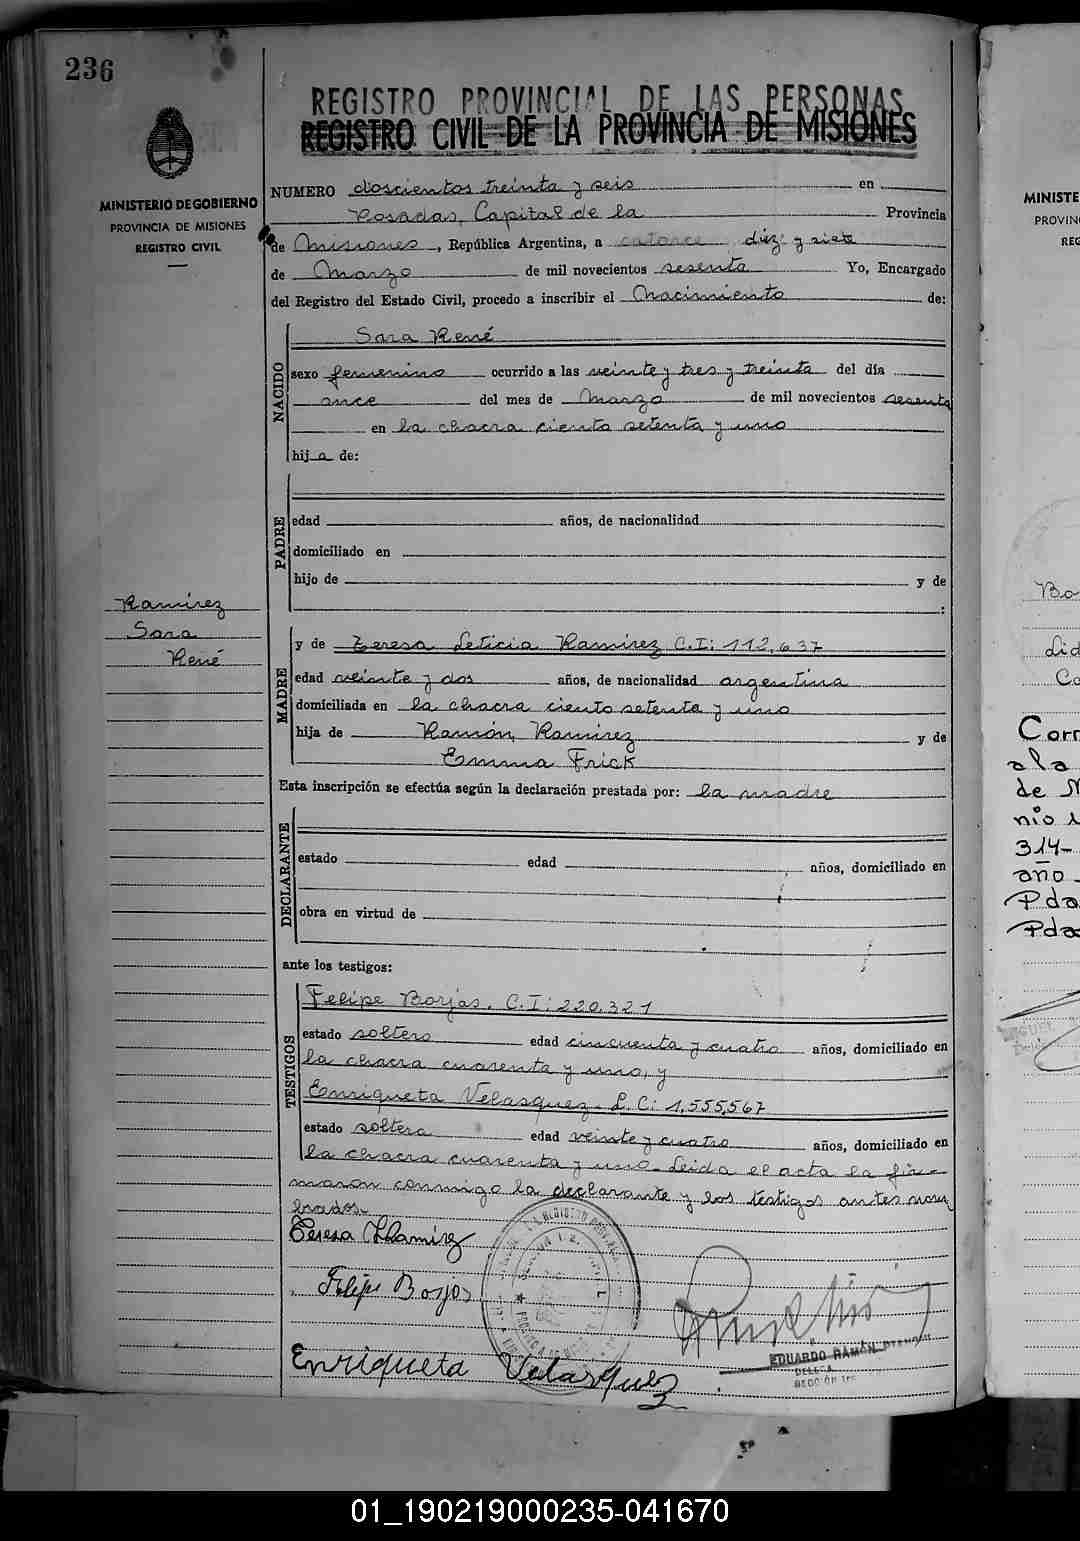 236
REGISTRO PROVINCIAL DE LAS PERSONAS
REGISTRO CIVIL DE LA PROVINCIA DE MISIONES
MINISTERIO DE GOBIERNO
PROVINCIA DE MISIONES
REGISTRO CIVIL
NUMERO doscientos treinta y seis en
Posadas, Capital de la Provincia
de Misiones, República Argentina, a catorce diez y siete
de Marzo de mil novecientos sesenta Yo, Encargado
del Registro del Estado Civil, procedo a inscribir el Nacimiento de:
NACIDO
Sara René
sexo femenino ocurrido a las veinte y tres y treinta del día
once del mes de Marzo de mil novecientos sesenta
en la chacra ciento setenta y uno
hija de:
PADRE
edad años, de nacionalidad
domiciliado en
hijo de y de
:
Ramírez
Sara
René
MADRE
y de Teresa Leticia Ramírez C.I: 112.637
edad veinte y dos años, de nacionalidad argentina
domiciliada en la chacra ciento setenta y uno
hija de Ramón Ramírez y de
Emma Frick
Esta inscripción se efectúa según la declaración prestada por: la madre
DECLARANTE
estado edad años, domiciliado en
obra en virtud de
ante los testigos:
TESTIGOS
Felipe Borjas. C.I: 220.321
estado soltero edad cincuenta y cuatro años, domiciliado en
la chacra cuarenta y uno, y
Enriqueta Velasquez. L.C: 1.555.567
estado soltera edad veinte y cuatro años, domiciliado en
la chacra cuarenta y uno. Leida el acta la fir-
maron conmigo la declarante y los testigos antes nom
brados.
Teresa L Ramírez
Felipe Borjas
Enriqueta Velasquez
EDUARDO RAMÓN
MINISTE
PROVIN
REG
Bo
Lid
Co
Corr
a la
de M
nio
314-
año
Pda
Pda
01_190219000235-041670